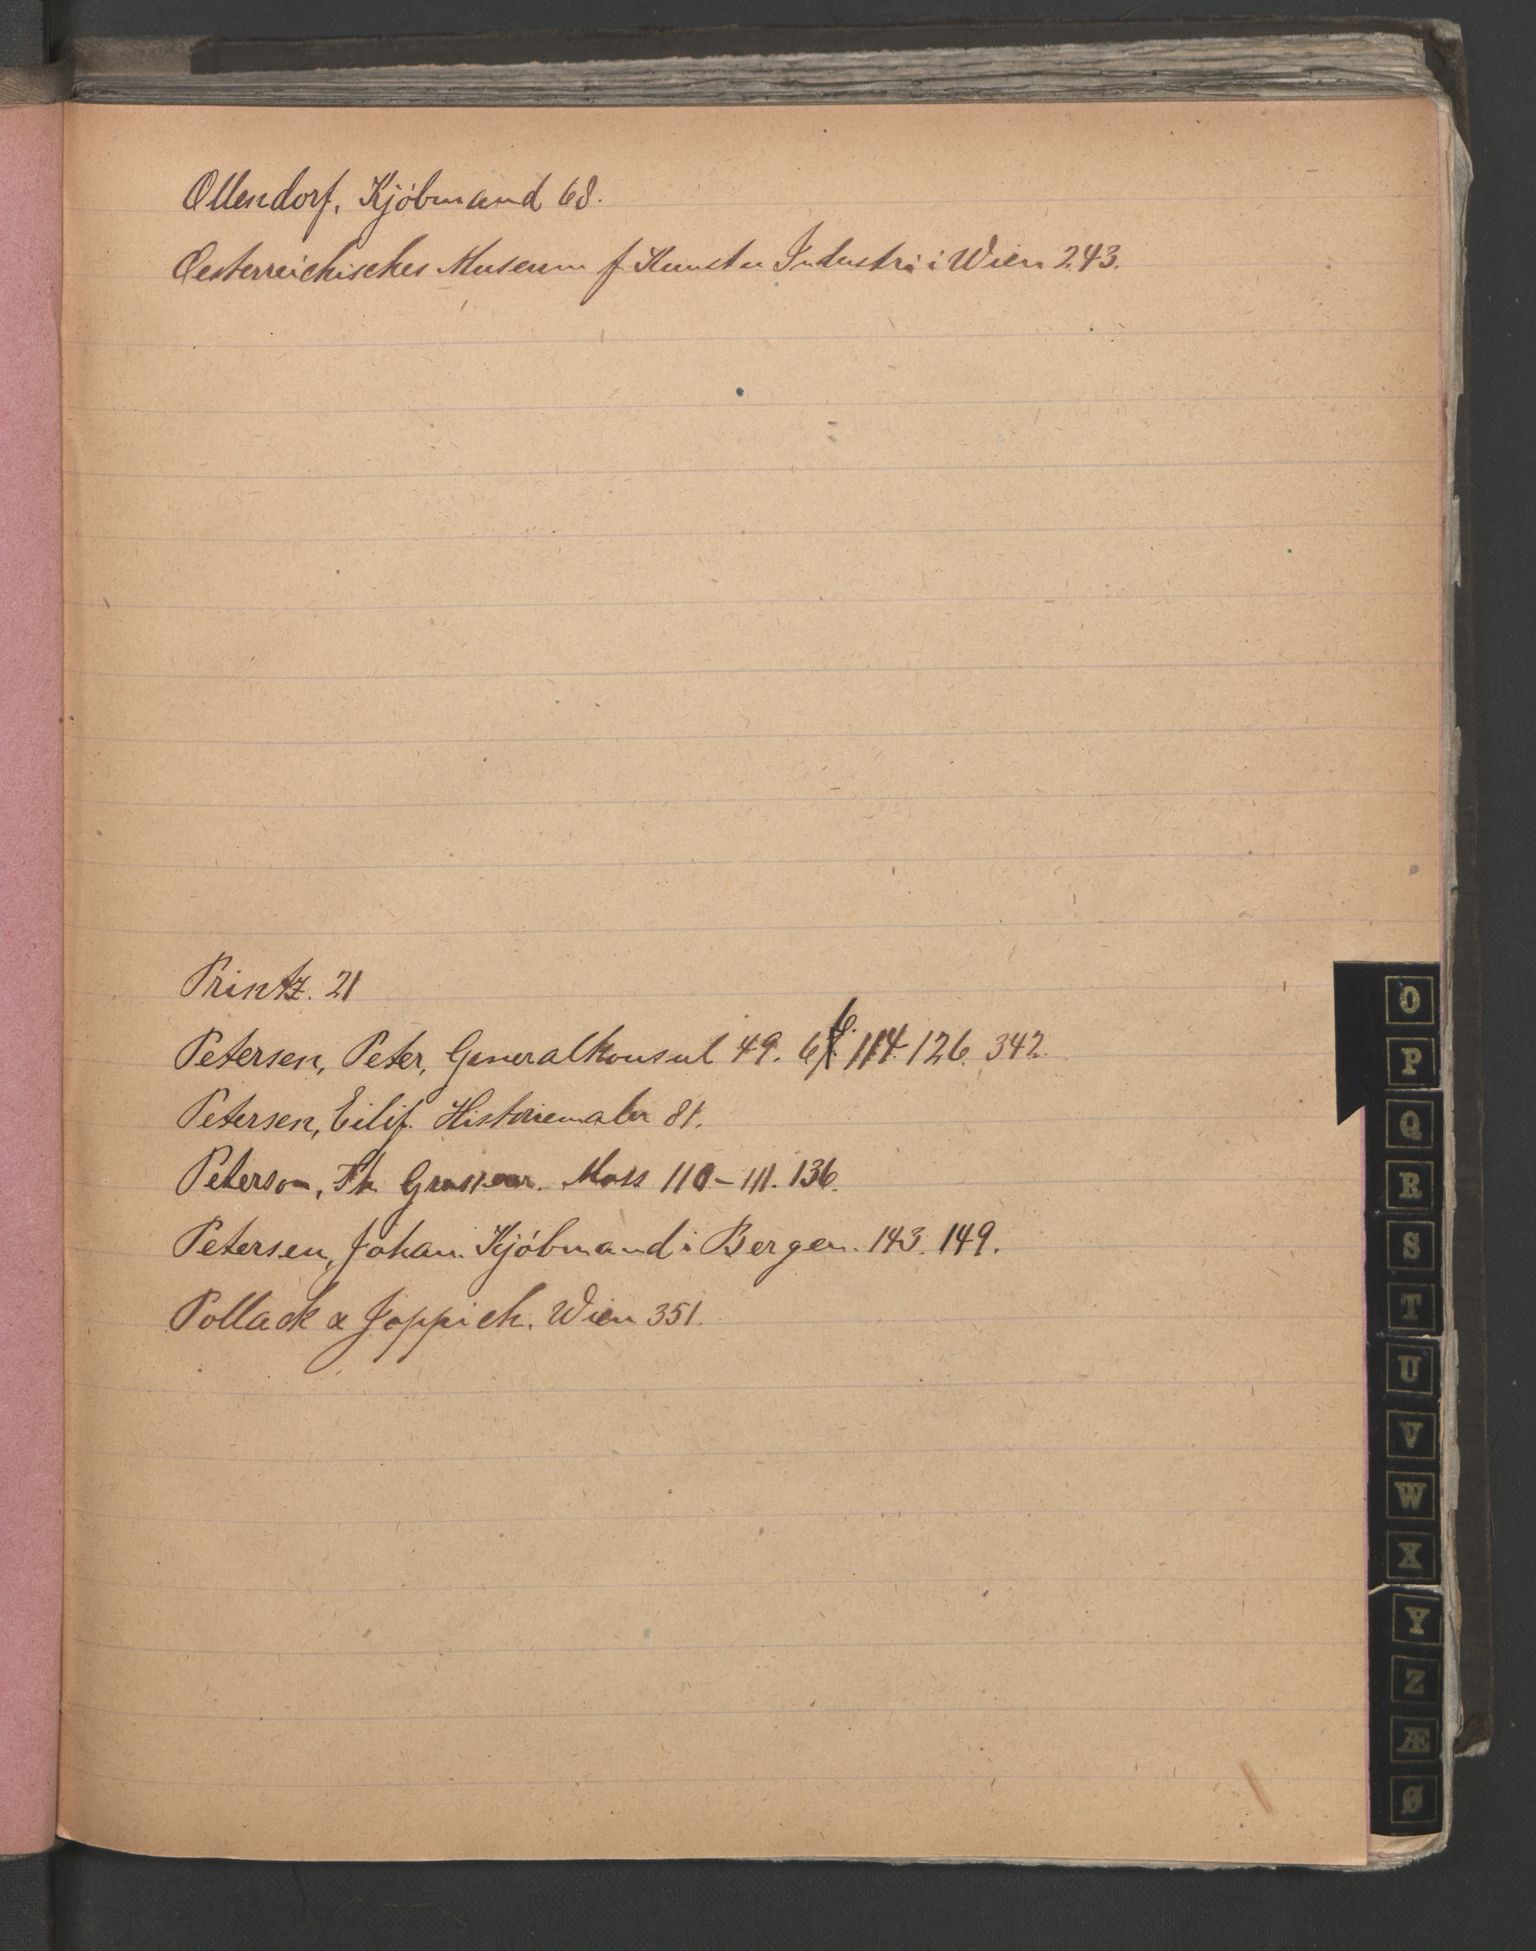 Ollendorf, Kjöbmand 68.
Oesterreichisches Museum f. Kunst u Industri i Wien 243.
Printz. 21
Petersen, Peter, Generalkonsul 49. 66. 114. 126. 342.
Petersen, Eilif. Historiemaler 81.
Peterson, Th Moss 110-111. 136.
Petersen, Johan Kjöbmand i Bergen. 143. 149.
Pollack & Joppich. Wien 351.
O
P
Q
R
S
T
U
V
W
X
Y
Z
Æ
Ø